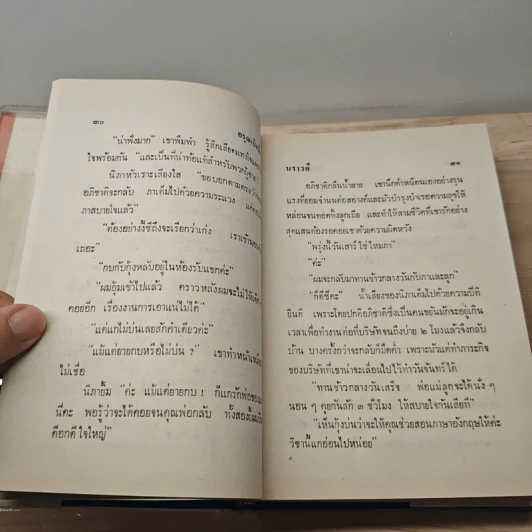 ๓๐
"น่าฟังมาก" เขาพึมพำ รู้สึกเลือด
ใจพร้อมกัน "และเป็นที่น่าท้อแท้สำหรับพวก
นิภาหัวเราะเสียงใส "ขอบอกตามตรง
อภิชาติจะกลับ ภาเต็มไปด้วยความระแวง
ภาสบายใจแล้ว"
"ต้องอย่างงี้ซีถึงจะเรียกว่าเก่ง เราเข้านอน
เถอะ"
"กบกับกุ้งหลับอยู่ในห้องรับแขกค่ะ"
"ผมอุ้มเข้าไปแล้ว คราวหลังผมจะไม่ให้
คอยอีก เรื่องงานการเอาแน่ไม่ได้"
"แต่แกไม่บ่นเลยสักคำเดียวค่ะ"
"แม้แต่ยายกบหรือไม่บ่น ? " เขาทำหน้า
ไม่เชื่อ
นิภายิ้ม "ค่ะ แม้แต่ยายกบ ! ก็แกรักพ่อ
นี่คะ พอรู้ว่าจะได้คอยจนคุณพ่อกลับ ทั้งสองยิ้ม
คึอกคึใจใหญ่"
นราวดี
๓๑
อภิชาติกลืนน้ำลาย เขานึกตำหนิตนเองอย่างรุน
แรงที่ยอมจำนนต่อสอางค์และมัวบำรุงบำเรอความสุขให้
หล่อนจนทอดทิ้งลูกเมีย และทำให้สามชีวิตที่เขารักอย่าง
สุดแสนต้องรอคอยเขาด้วยความผิดหวัง
"พรุ่งนี้วันเสาร์ ใช่ไหมภา"
"ค่ะ"
"ผมจะกลับมาทานข้าวกลางวันกับภาและลูก"
"ก็ดีซีคะ" น้ำเสียงของนิภาเต็มไปด้วยความปีติ
ยินดี เพราะโดยปกติอภิชาติซึ่งเป็นคนขยันมักจะอยู่เกิน
เวลาเพื่อทำงานต่อที่บริษัทจนถึงบ่าย ๒ โมงแล้วจึงกลับ
บ้าน บางครั้งกว่าจะกลับก็มืดค่ำ เพราะมัวแต่ทำภาระกิจ
ของบริษัทที่เขาน่าจะเลื่อนไปไว้ทำวันจันทร์ได้
"ทานข้าวกลางวันเสร็จ พ่อแม่ลูกจะได้นั่ง ๆ
นอน ๆ คุยกันสัก ๓ ชั่วโมง ให้สบายใจกันเสียที"
"เห็นกุ้งบ่นว่าจะให้คุณช่วยสอนภาษาอังกฤษให้ค่ะ
วิชานี้แกอ่อนไปหน่อย"